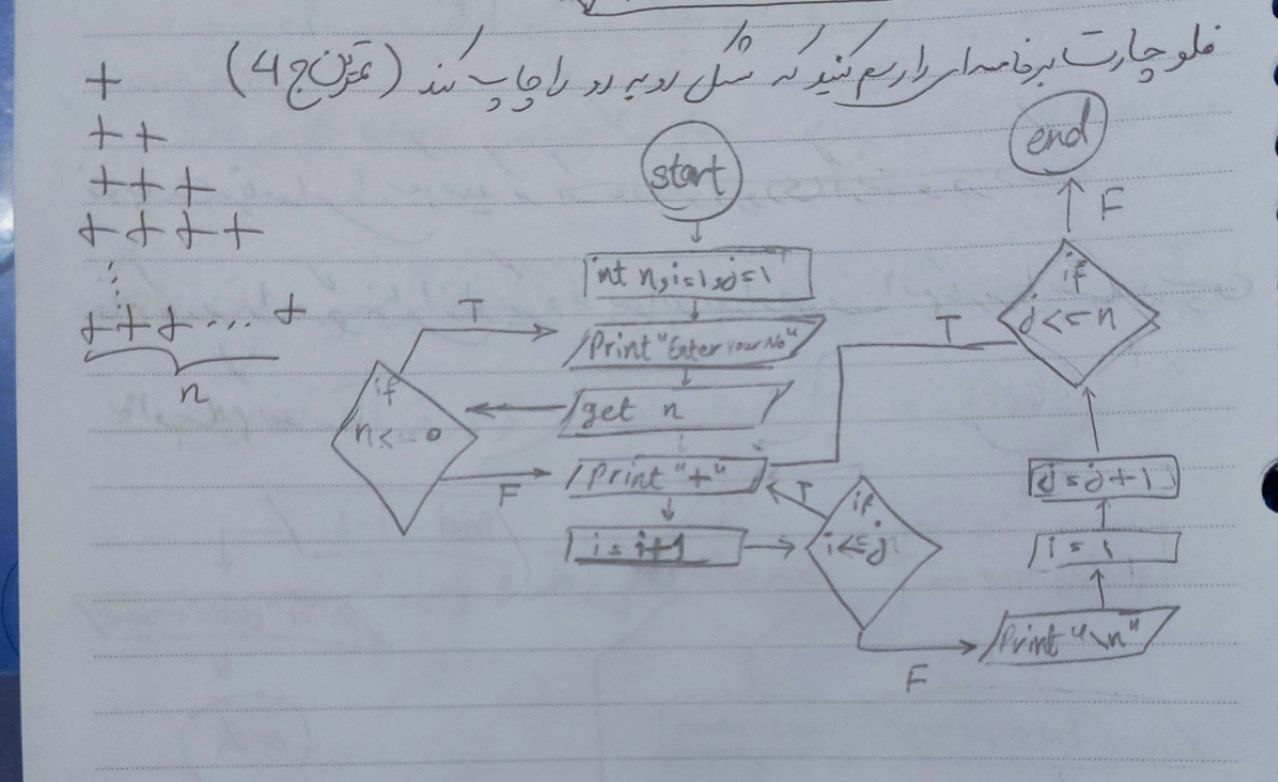 فلوچارت برنامه ای را رسم کنید که شکل رو به رو را چاپ کند (تمرین ج 4)
+
+ +
+ + +
+ + + +
⋮
+ + + ... +
n
start
int n, i=1, j=1
Print "Enter your No"
get n
if
n <= 0
T
F
Print "+"
i = i+1
if
i <= j
T
F
Print "\n"
i = 1
j = j + 1
if
j <= n
T
F
end